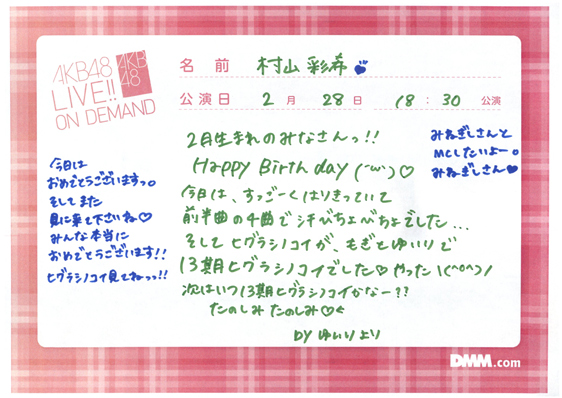 AKB48
LIVE!!
ON DEMAND
AKB
48
名 前 村山 彩希
公演日 2 月 28 日 18 : 30 公演
2月生まれのみなさんっ!!
Happy Birthday (´ω`)♡
今日は、すっごーくはりきっていて
前半曲の4曲で汗べちょべちょでした...
そしてヒグラシノコイが、もぎとゆいりで
13期ヒグラシノコイでした♡やった \(^o^)/
次はいつ13期ヒグラシノコイかなー??
たのしみ たのしみ♡
by ゆいりより
みねぎしさんと
MCしたいよー。
みねぎしさん♥
今日は
おめでとうございますっ。
そしてまた
見に来て下さいね♡
みんな本当に
おめでとうございます!!
ヒグラシノコイ見てねっっ!!
DMM.com